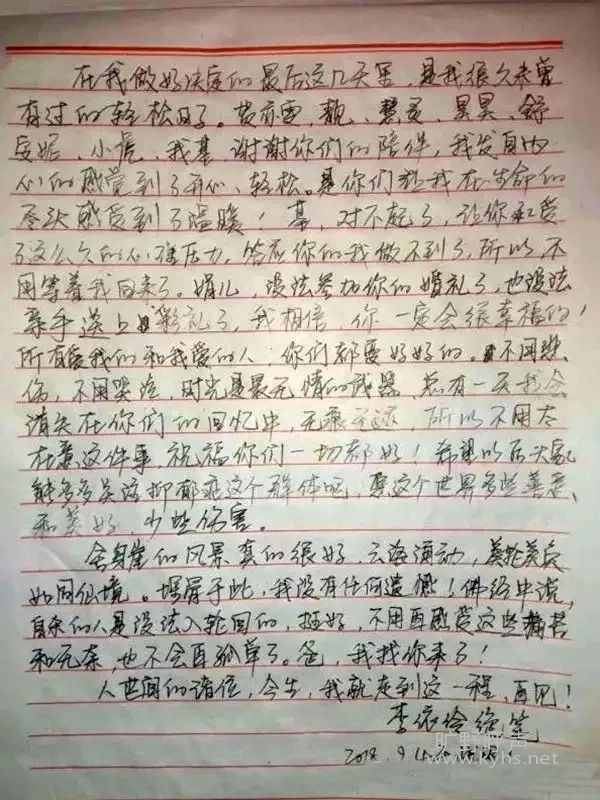 在我做好决定的最后这几天里,是我很久未曾
有过的轻松日子。
小虎、我基,谢谢你们的陪伴,我发自内
心的感觉到了开心、轻松。是你们让我在生命的
尽头感受到了温暖!基,对不起了,让你承受
了这么久的心理压力,答应你们的我做不到了,所以,不
用等着我回来了。娟儿,没法参加你的婚礼了,也没法
亲手送上彩礼了,我相信,你一定会很幸福的!
所有爱我的和我爱的人,你们都要好好的。不用悲
伤,不用哭泣,时光是最无情的武器,总有一天我会
消失在你们的回忆中,无痕无迹,所以不用太
在意这件事,祝福你们一切都好!希望以后大家
能多多关注抑郁症这个群体吧,愿这个世界多些善意
和美好,少些伤害。
舍身崖的风景真的很好,云海涌动,
如同仙境。殒身于此,我没有任何遗憾!佛经中说,
自杀的人是没法入轮回的,挺好,不用再感受这些痛苦
和无奈,也不会再孤单了。爸,我找你来了!
人世间的诸位,今生,我就走到这一程,再见!
李依玲绝笔
2018.9.4
旷野呼声
www.kyhs.net